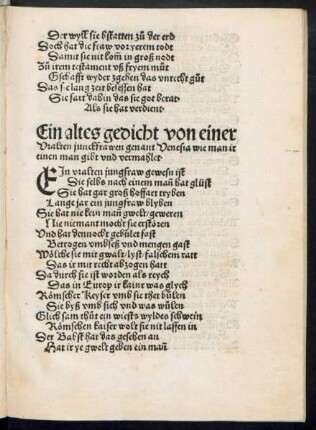 Der wyll sie bstatten zů der erd
Doch hat die fraw vor yerem todt
Damit sie nit kom̄ in groß nodt
Zů irem testament vß fryem můt
Gschafft wyder zgeben das vnrecht gůt
Das sie lang zeit besessen hat
Sie fart dahin das sie got berat
Als sie hat verdient
Ein altes gedicht von einer
Vralten junckfrawen genant Venesia wie man ir
einen man gibt vnd vermahlet
EIn vralten jungfraw gewesn ist
Die selbs nach einem man̄ hat glüst
Sie hat gar groß hoffart tryben
Lange jar ein jungfraw blyben
Sie hat kein man̄ gwelt geweren
Nie niemant mocht sie erstören
Vnd hat dennocht gebület fast
Betrogen vmbseß vnd mengen gast
Wölche sie mit gwalt lyst falschem ratt
Das ir mit recht abzogen hatt
Da durch sie ist worden als reych
Das in Europ ir kainr was glych
Römscher Keyser vmb sie thet bülen
Sie byß vmb sich vnd was wülen
Glich sam thüt ein wiests wyldes schwein
Römschen kaiser wolt sie nit lassen in
Der Babst hat das gesehen an
Hat ir ye gwelt geben ein man̄